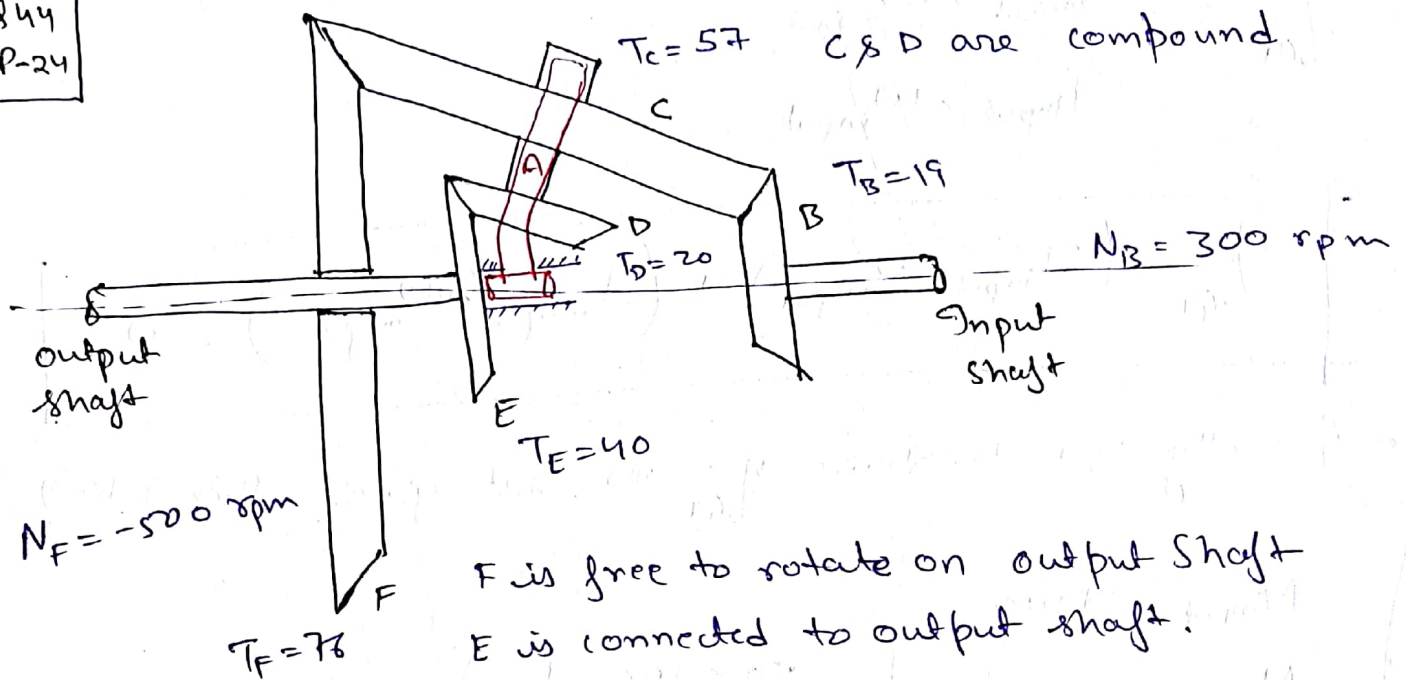 844
P-24
Tc = 57 C & D are compound.
C
A
TB = 19
B
D
TD = 20
NB = 300 rpm
Input
shaft
output
shaft
E
TE = 40
NF = -500 rpm
F is free to rotate on output Shaft
F
TF = 76 E is connected to output shaft.